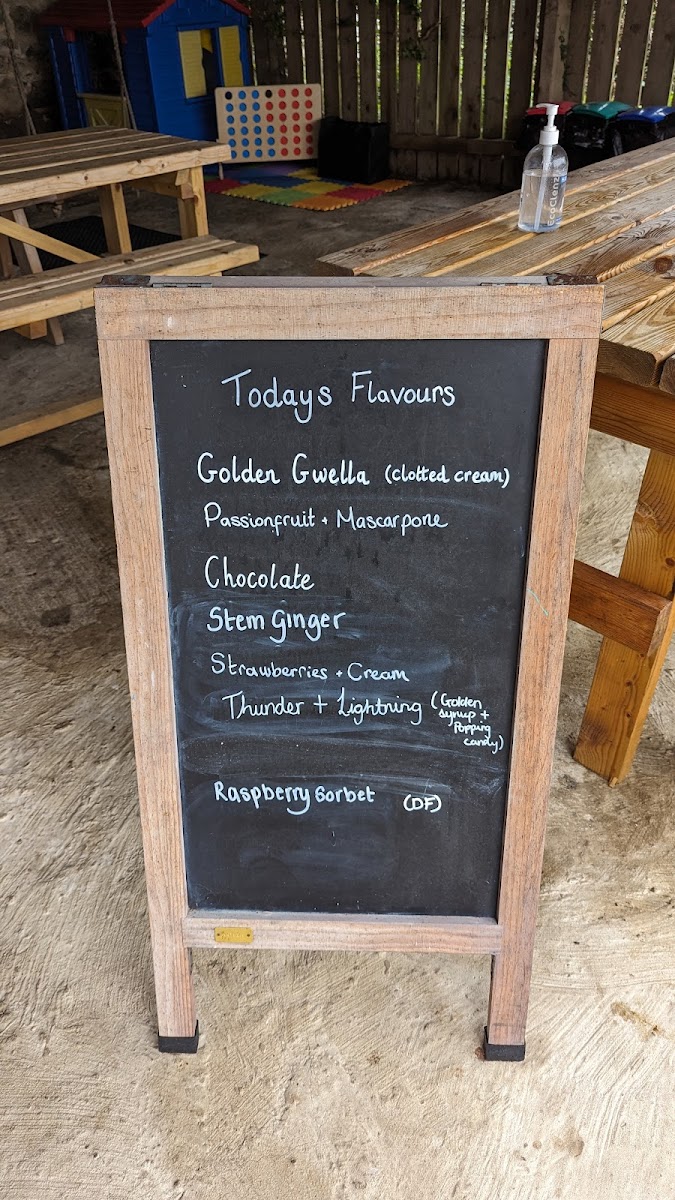 Todays Flavours
Golden Gwella (clotted cream)
Passionfruit + Mascarpone
Chocolate
Stem Ginger
Strawberries + Cream
Thunder + Lightning (Golden
syrup +
Popping
candy)
Raspberry Sorbet (DF)
EcoClenz